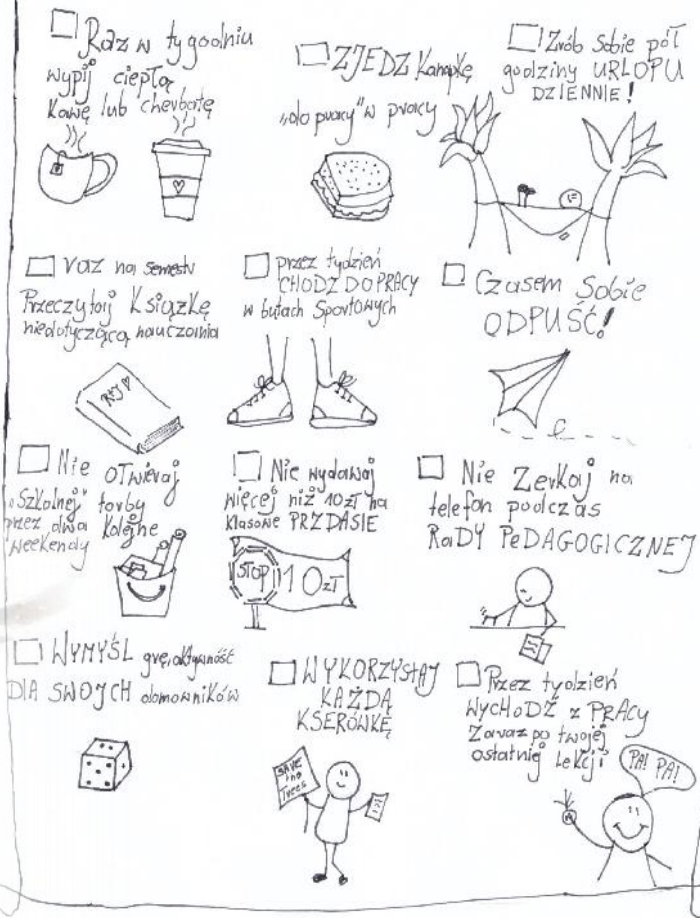 Raz w tygodniu
wypij ciepłą
kawę lub cherbatę
ZJEDZ kanapkę
„do pracy" w pracy
Zrób sobie pół
godziny URLOPU
DZIENNIE!
raz na semestr
Przeczytaj Książkę
niedotyczącą nauczania
R+J
przez tydzień
CHODŹ DO PRACY
w butach sportowych
Czasem Sobie
ODPUŚĆ!
Nie OTwieraj
„Szkolnej" torby
przez dwa kolejne
weekendy
Nie wydawaj
więcej niż 10zł na
klasowe PRZDASIE
STOP 10zł
Nie Zerkaj na
telefon podczas
RaDY PeDAGOGICZNEJ
WYMYŚL grę, aktywność
DLA SWOJCH domowników
WYKORZYSTAJ
KAŻDĄ
KSERÓWKĘ
SAVE
the
trees
Przez tydzień
WYCHODŹ z PRACY
Zaraz po twojej
ostatniej lekcji
PA! PA!